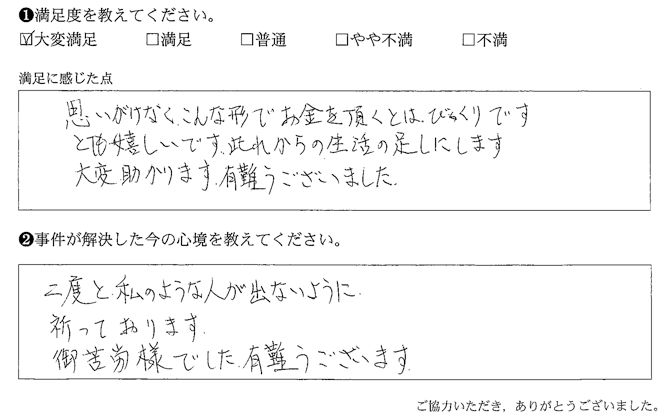 ❶満足度を教えてください。
☑大変満足 □満足 □普通 □やや不満 □不満
満足に感じた点
思いがけなく、こんな形でお金を頂くとは、びっくりです
とても嬉しいです、此れからの生活の足しにします
大変助かります、有難うございました。
❷事件が解決した今の心境を教えてください。
二度と、私のような人が出ないように、
祈っております。
御苦労様でした、有難うございます。
ご協力いただき、ありがとうございました。